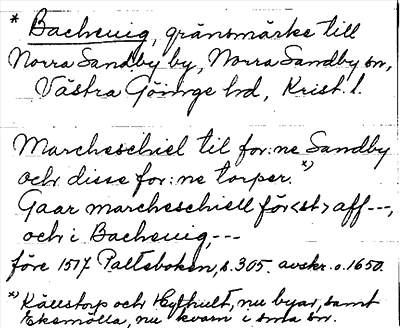 * Bacheuig, gränsmärke till
Norra Sandby by, Norra Sandby sn,
Västra Göinge hd, Krist. l.
Marcheschiel til for:ne Sandby
och disse for:ne torper. *)
Gaar marcheschiell för<st> aff ---,
och i Bacheuig, ---
före 1517 Paltsboken, s. 305. avskr. o. 1650.
*) Källstorp och Hylhult, nu byar, samt
Eksmölla, nu kvarn i sma sn.